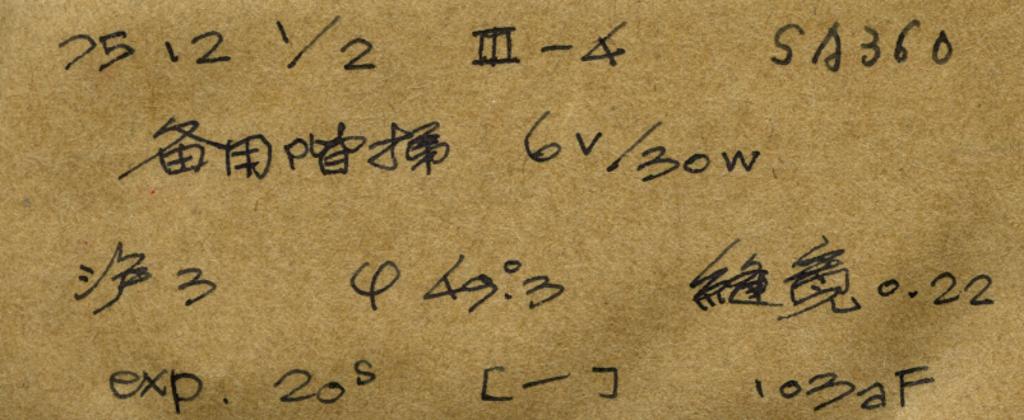 75.12 1/2 III-4 SA360
备用階梯 6V/30W
净3 φ 49°.3 縫寬 0.22
exp. 20s [一] 103aF